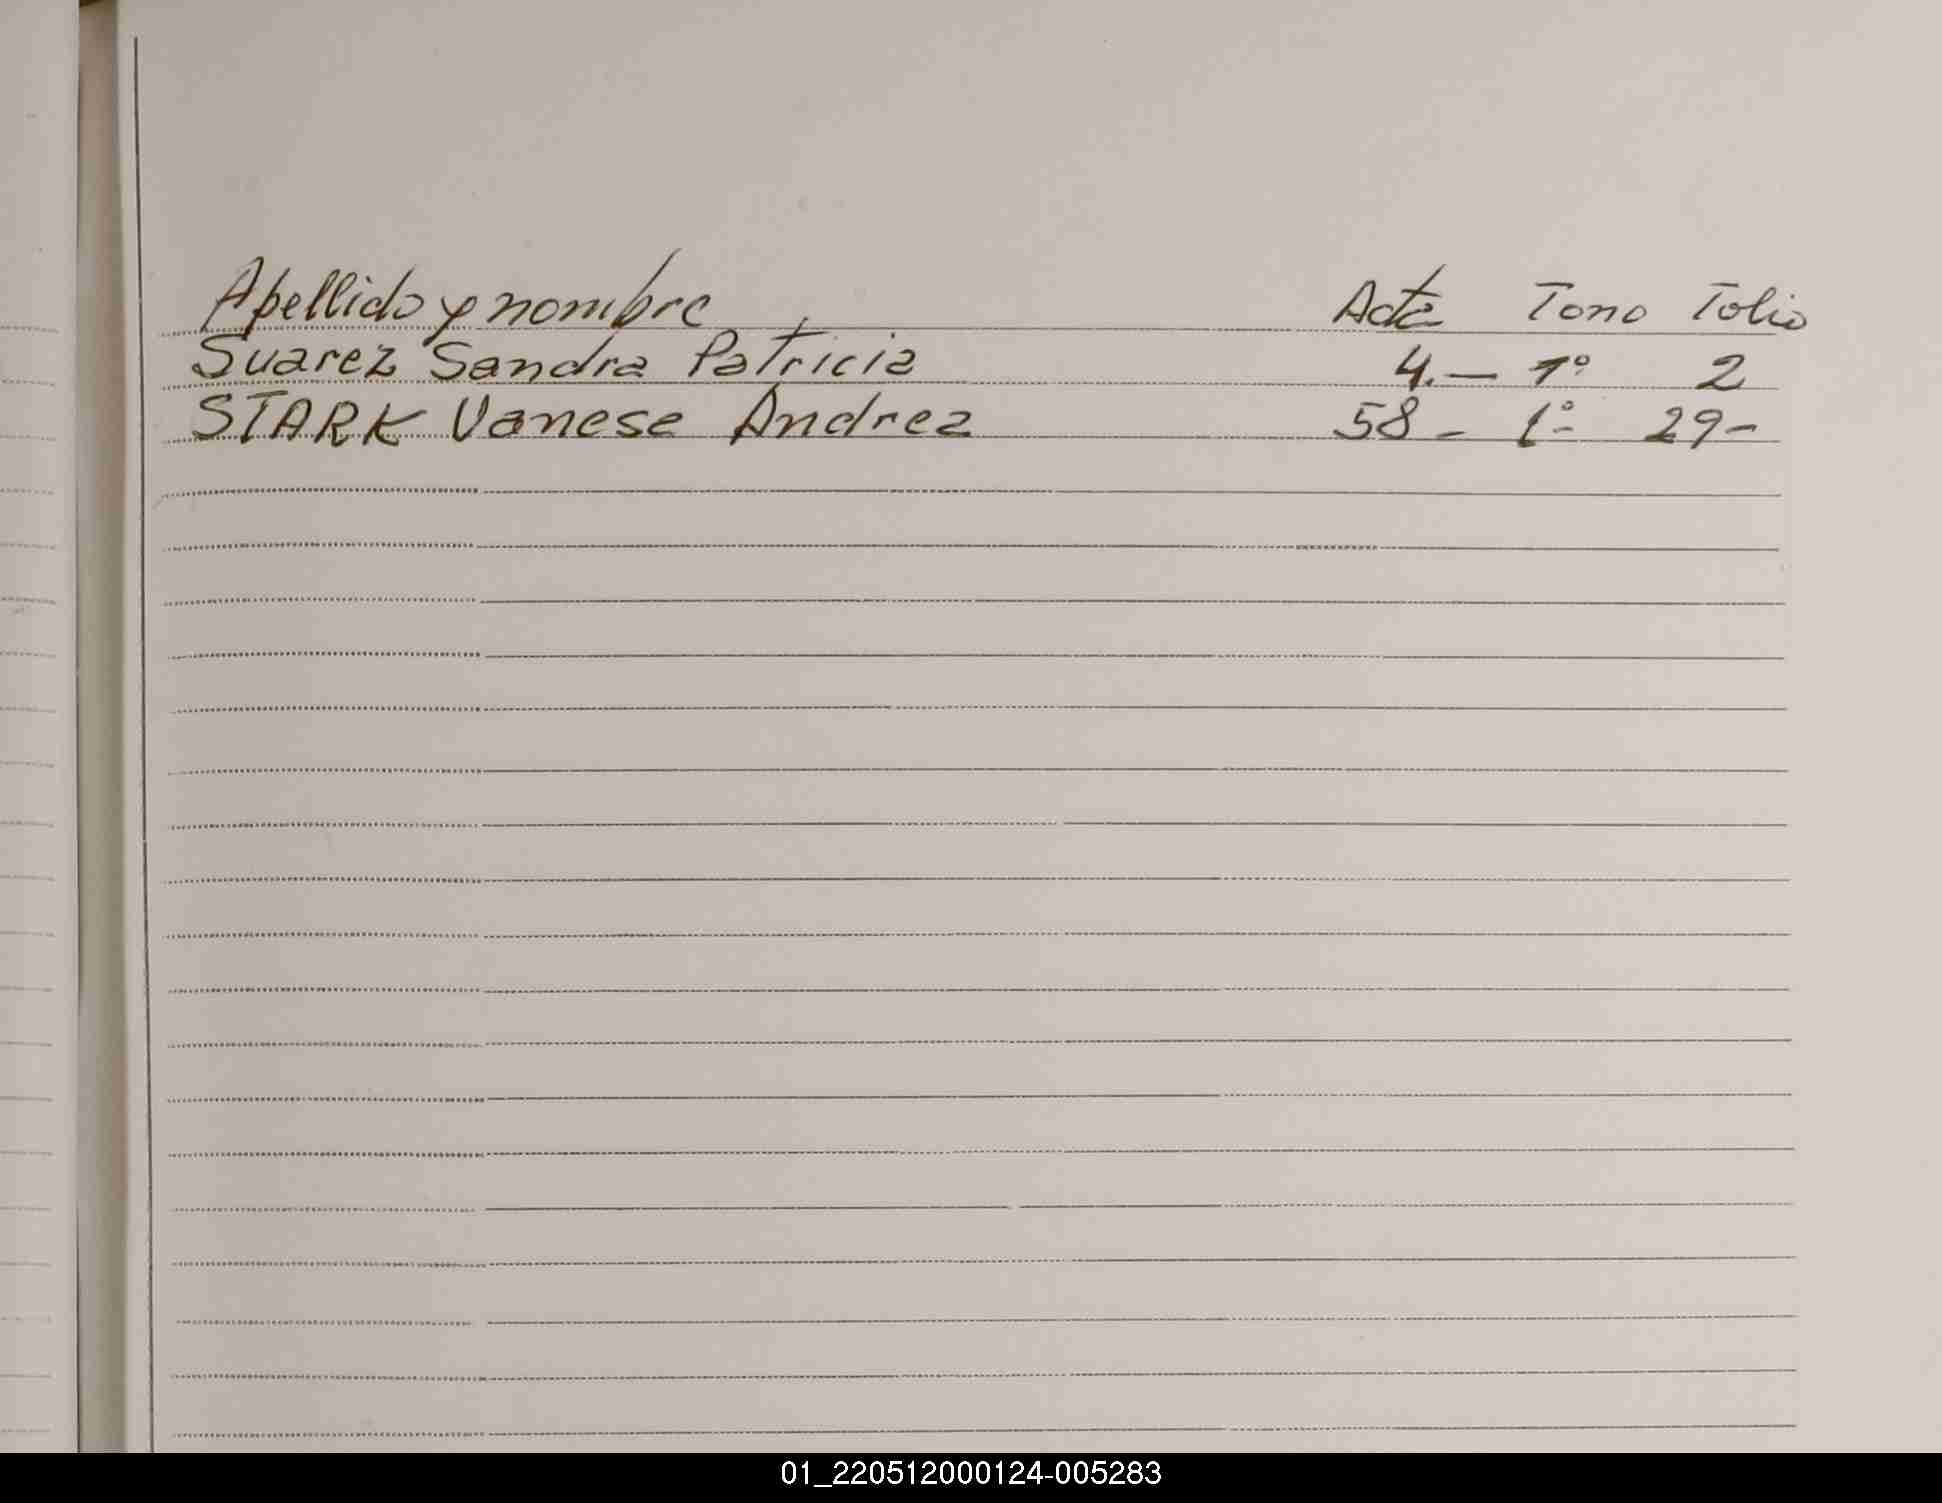 Apellido y nombre Acta Tomo Folio
Suarez Sandra Patricia 4.— 1° 2
STARK Vanesa Andrea 58 - 1° 29-
01_220512000124-005283